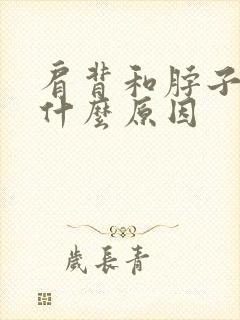 肩背和脖子
什麼原因
歲長青